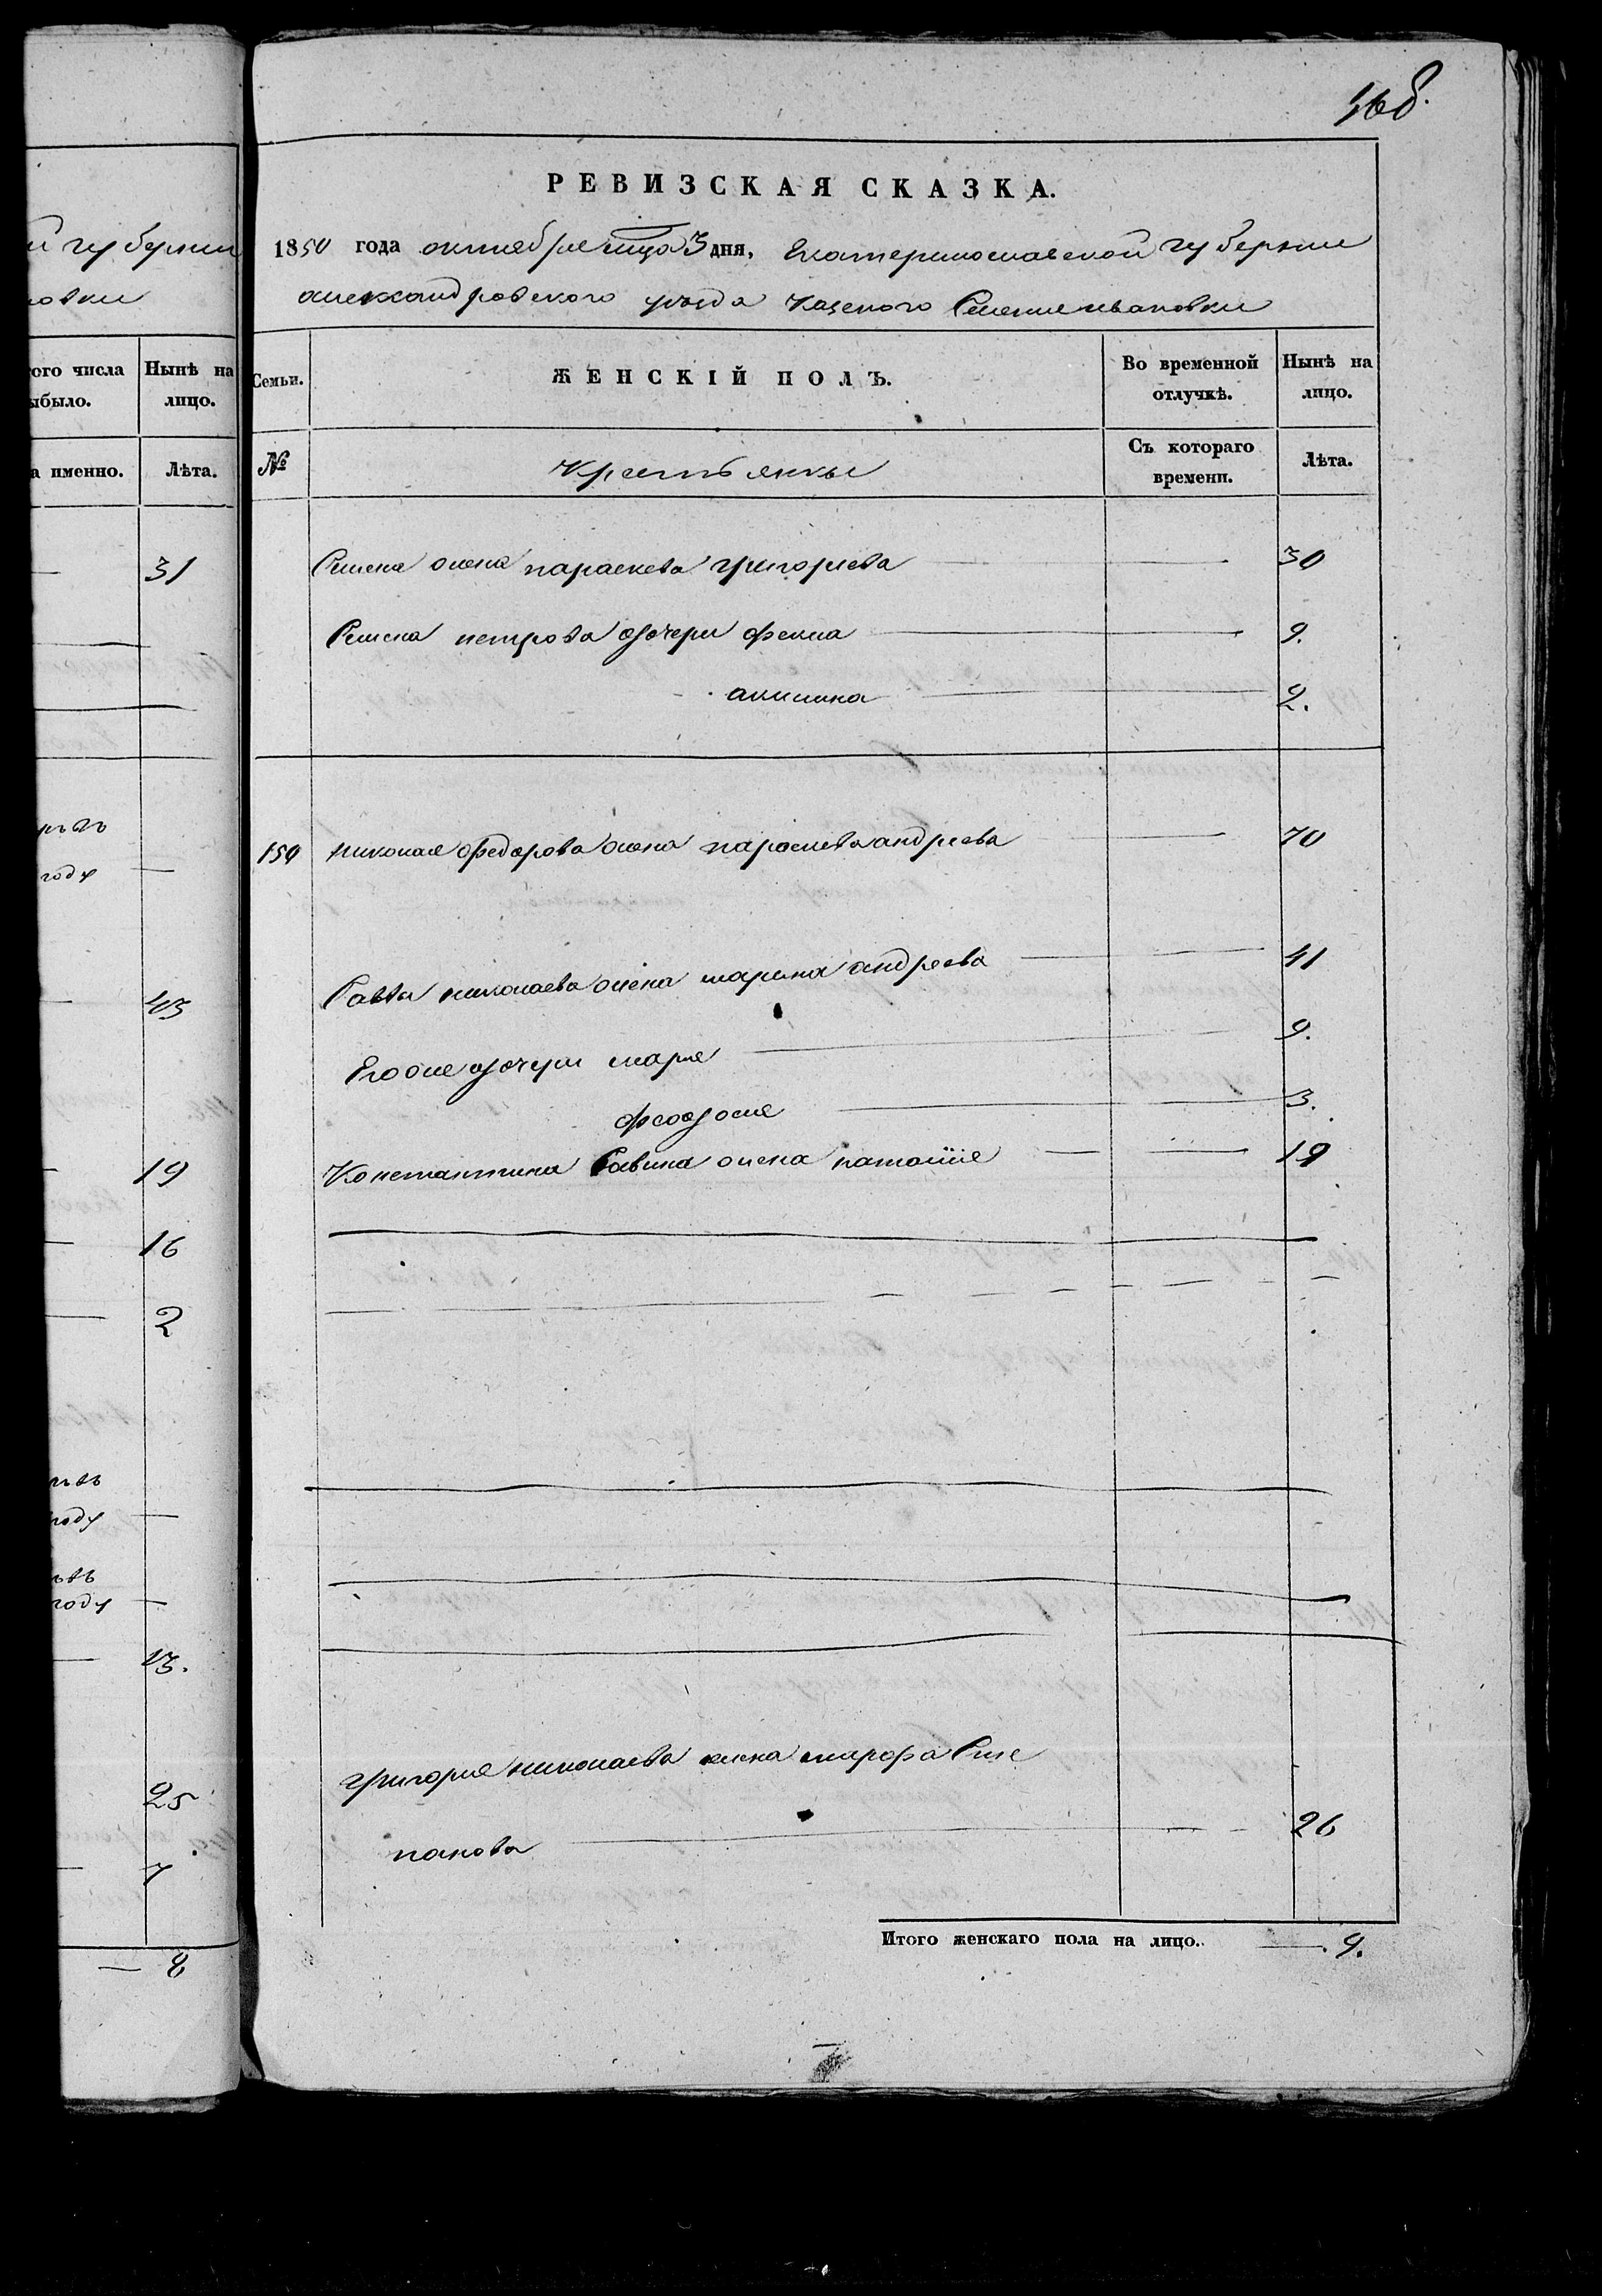 168.
РЕВИЗСКАЯ СКАЗКА.
1850 года октября мца 3 дня, Екатеринославской губернии
александровского уезда Казеного Селения ивановки
й губернии
овки
того числа
ыбыло.
Нынѣ на
лицо.
а именно.
Лѣта.
31
году
43
19
16
2
году
году
13.
25
7
— 8
Семьи.
ЖЕНСКІЙ ПОЛЪ.
Во временной
отлучкѣ.
Нынѣ на
лицо.
№
Крестьянки
Съ котораго
времени.
Лѣта.
Семена жена параскева григорьева 30
Семена петрова дочери фекла 9.
акилина 2.
150 николая федорова жена параскева андреева 70
Савы николаева жена марина андреева 41
Его же дочери марья 9.
феодосия 3.
Константина Савина жена наталия 19
григория николаева жена марфа Сте
панова 26
Итого женскаго пола на лицо. — 9.